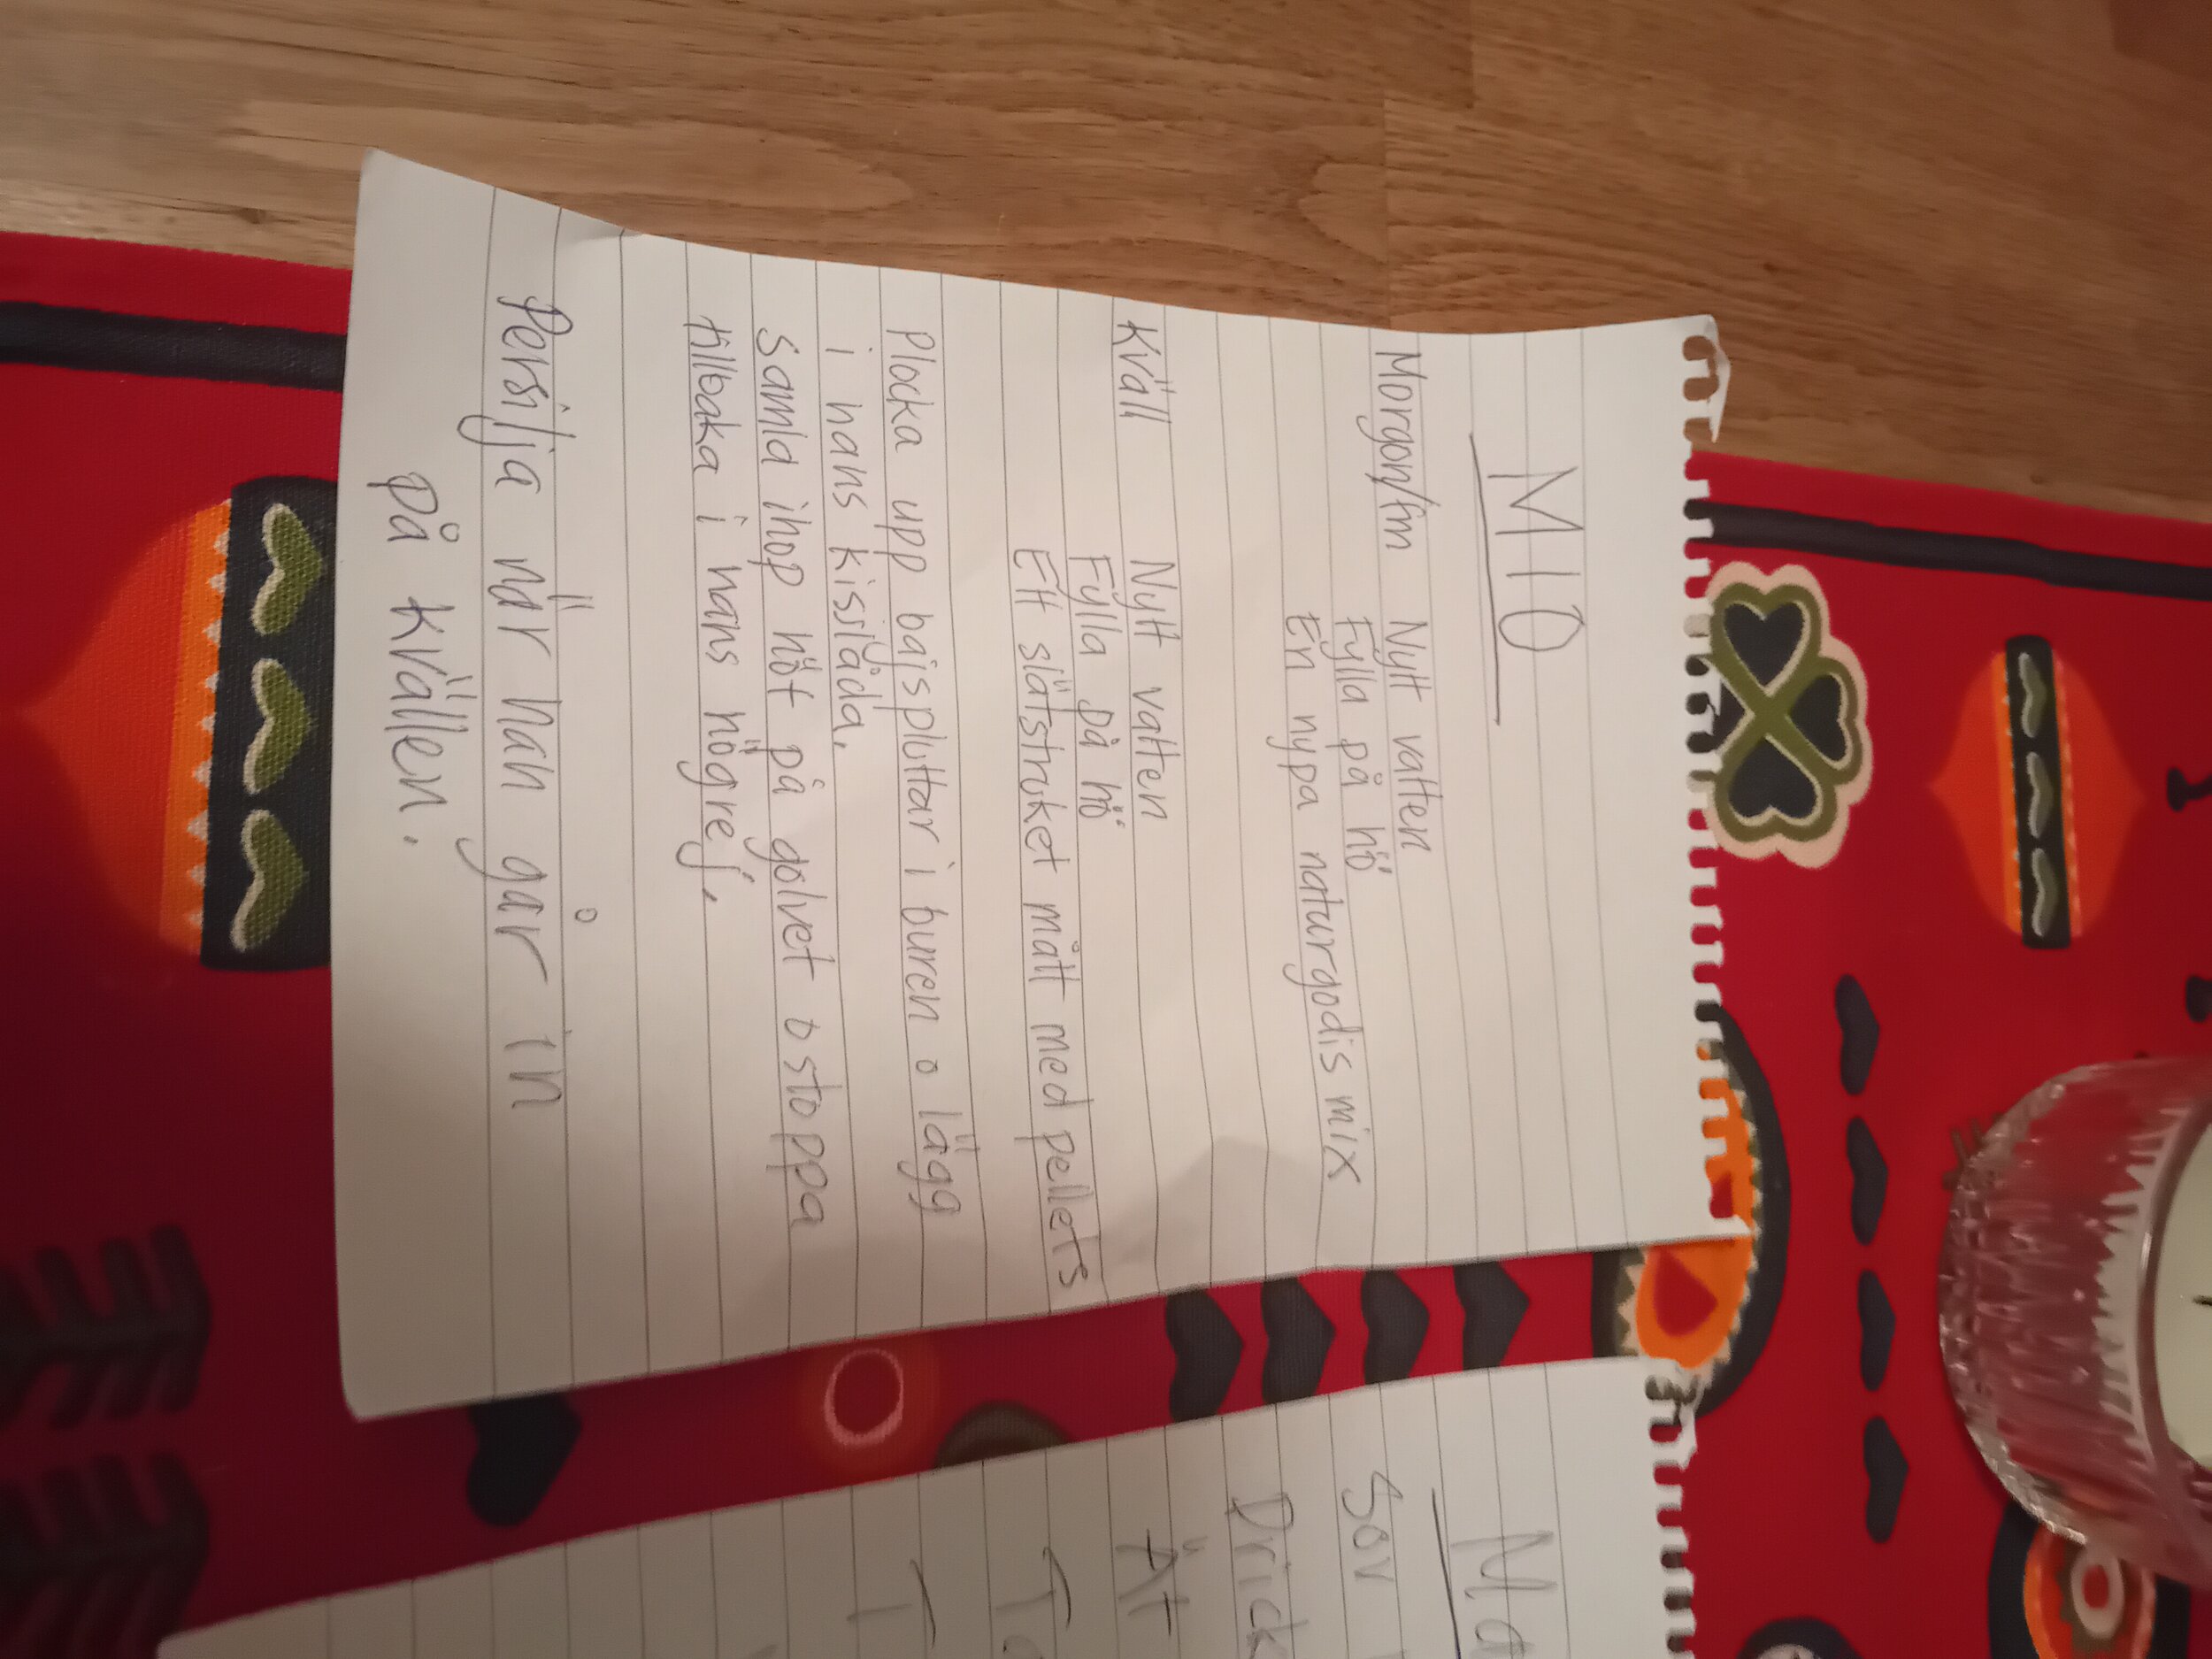 MIO
Morgon/fm Nytt vatten
Fylla på hö
En nypa naturgodis mix
Kväll Nytt vatten
Fylla på hö
Ett slätstruket mått med pellets
Plocka upp bajspluttar i buren o lägg
i hans kisslåda.
Samla ihop höt på golvet o stoppa
tillbaka i hans högrej.
Persilja när han går in
på kvällen.
Sov
Drick
Ät